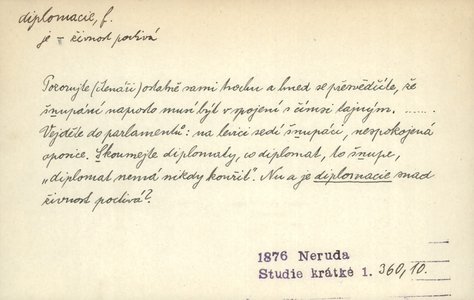 diplomacie, f.
je – živnost poctivá
Pozorujte (čtenáři) ostatně sami trochu a hned se přesvědčíte, že
šňupání naprosto musí být v spojení s čímsi tajným. .......
Vejděte do parlamentů: na levici sedí šňupáci, nespokojená
oposice. Skoumejte diplomaty, co diplomat, to šňupe,
„diplomat nemá nikdy kouřit". Nu a je diplomacie snad
živnost poctivá?
1876 Neruda
Studie krátké 1. 360,10.